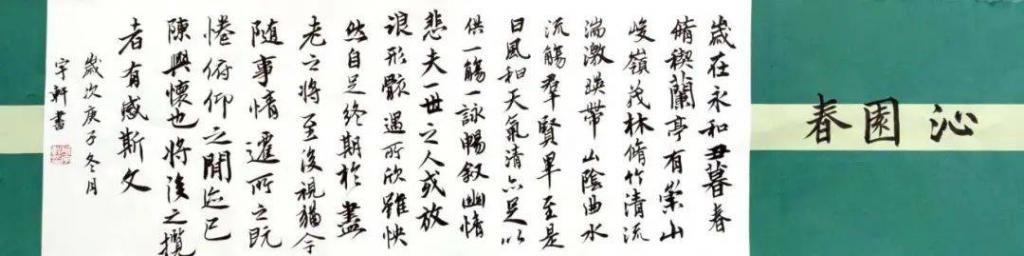 沁園春
歲在永和丑暮春
脩稧蘭亭有崇山
峻嶺茂林脩竹清流
湍激暎帶山陰曲水
流觴羣賢畢至是
日風和天氣清亦足以
供一觴一詠暢敘幽情
悲夫一世之人或放
浪形骸遇所欣雖快
然自足終期於盡
老之將至後視猶今
隨事情遷所之既
惓俯仰之間迹已
陳興懷也將後之攬
者有感斯文
歲次庚子冬月
宇軒書